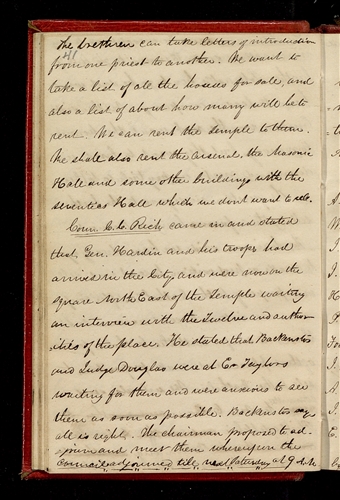 The brethren can take letters of introduction
41
from one priest to another. We want to
take a list of all the houses for sale, and
also a list of about how many will be to
rent. We can rent the Temple to them.
We shall also rent the Arsenal, the Masonic
Hall and some other buildings with the
seventies Hall which we dont want to sell.
Coun. C. C. Rich came in and stated
that Gen. Hardin and his troops had
arrived in the City and were now on the
square North East of the Temple waiting
an interview with the Twelve and author-
ities of the place. He stated that Backenstos
and Judge Douglas were at Er Taylors
waiting for them and were anxious to see
them as soon as possible. Backenstos says
all is right. The chairman proposed to ad-
journ and meet them whereupon the
council adjourned till next Saturday at 9 A.M.